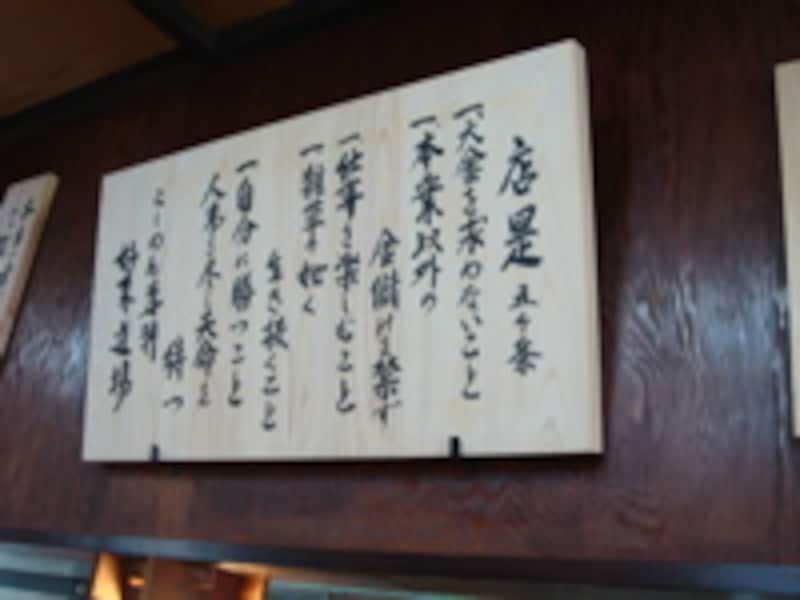 店是 五ヶ条
一大金を求めないこと
一本業以外の
金儲けを禁ず
一仕事を楽しむこと
一雑草の如く
生き抜くこと
一自分に勝つこと
人事を尽し天命を
待つ